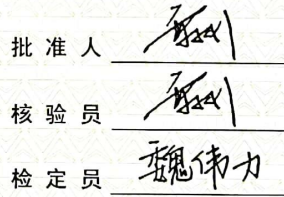 批准人
核验员
检定员 魏伟力